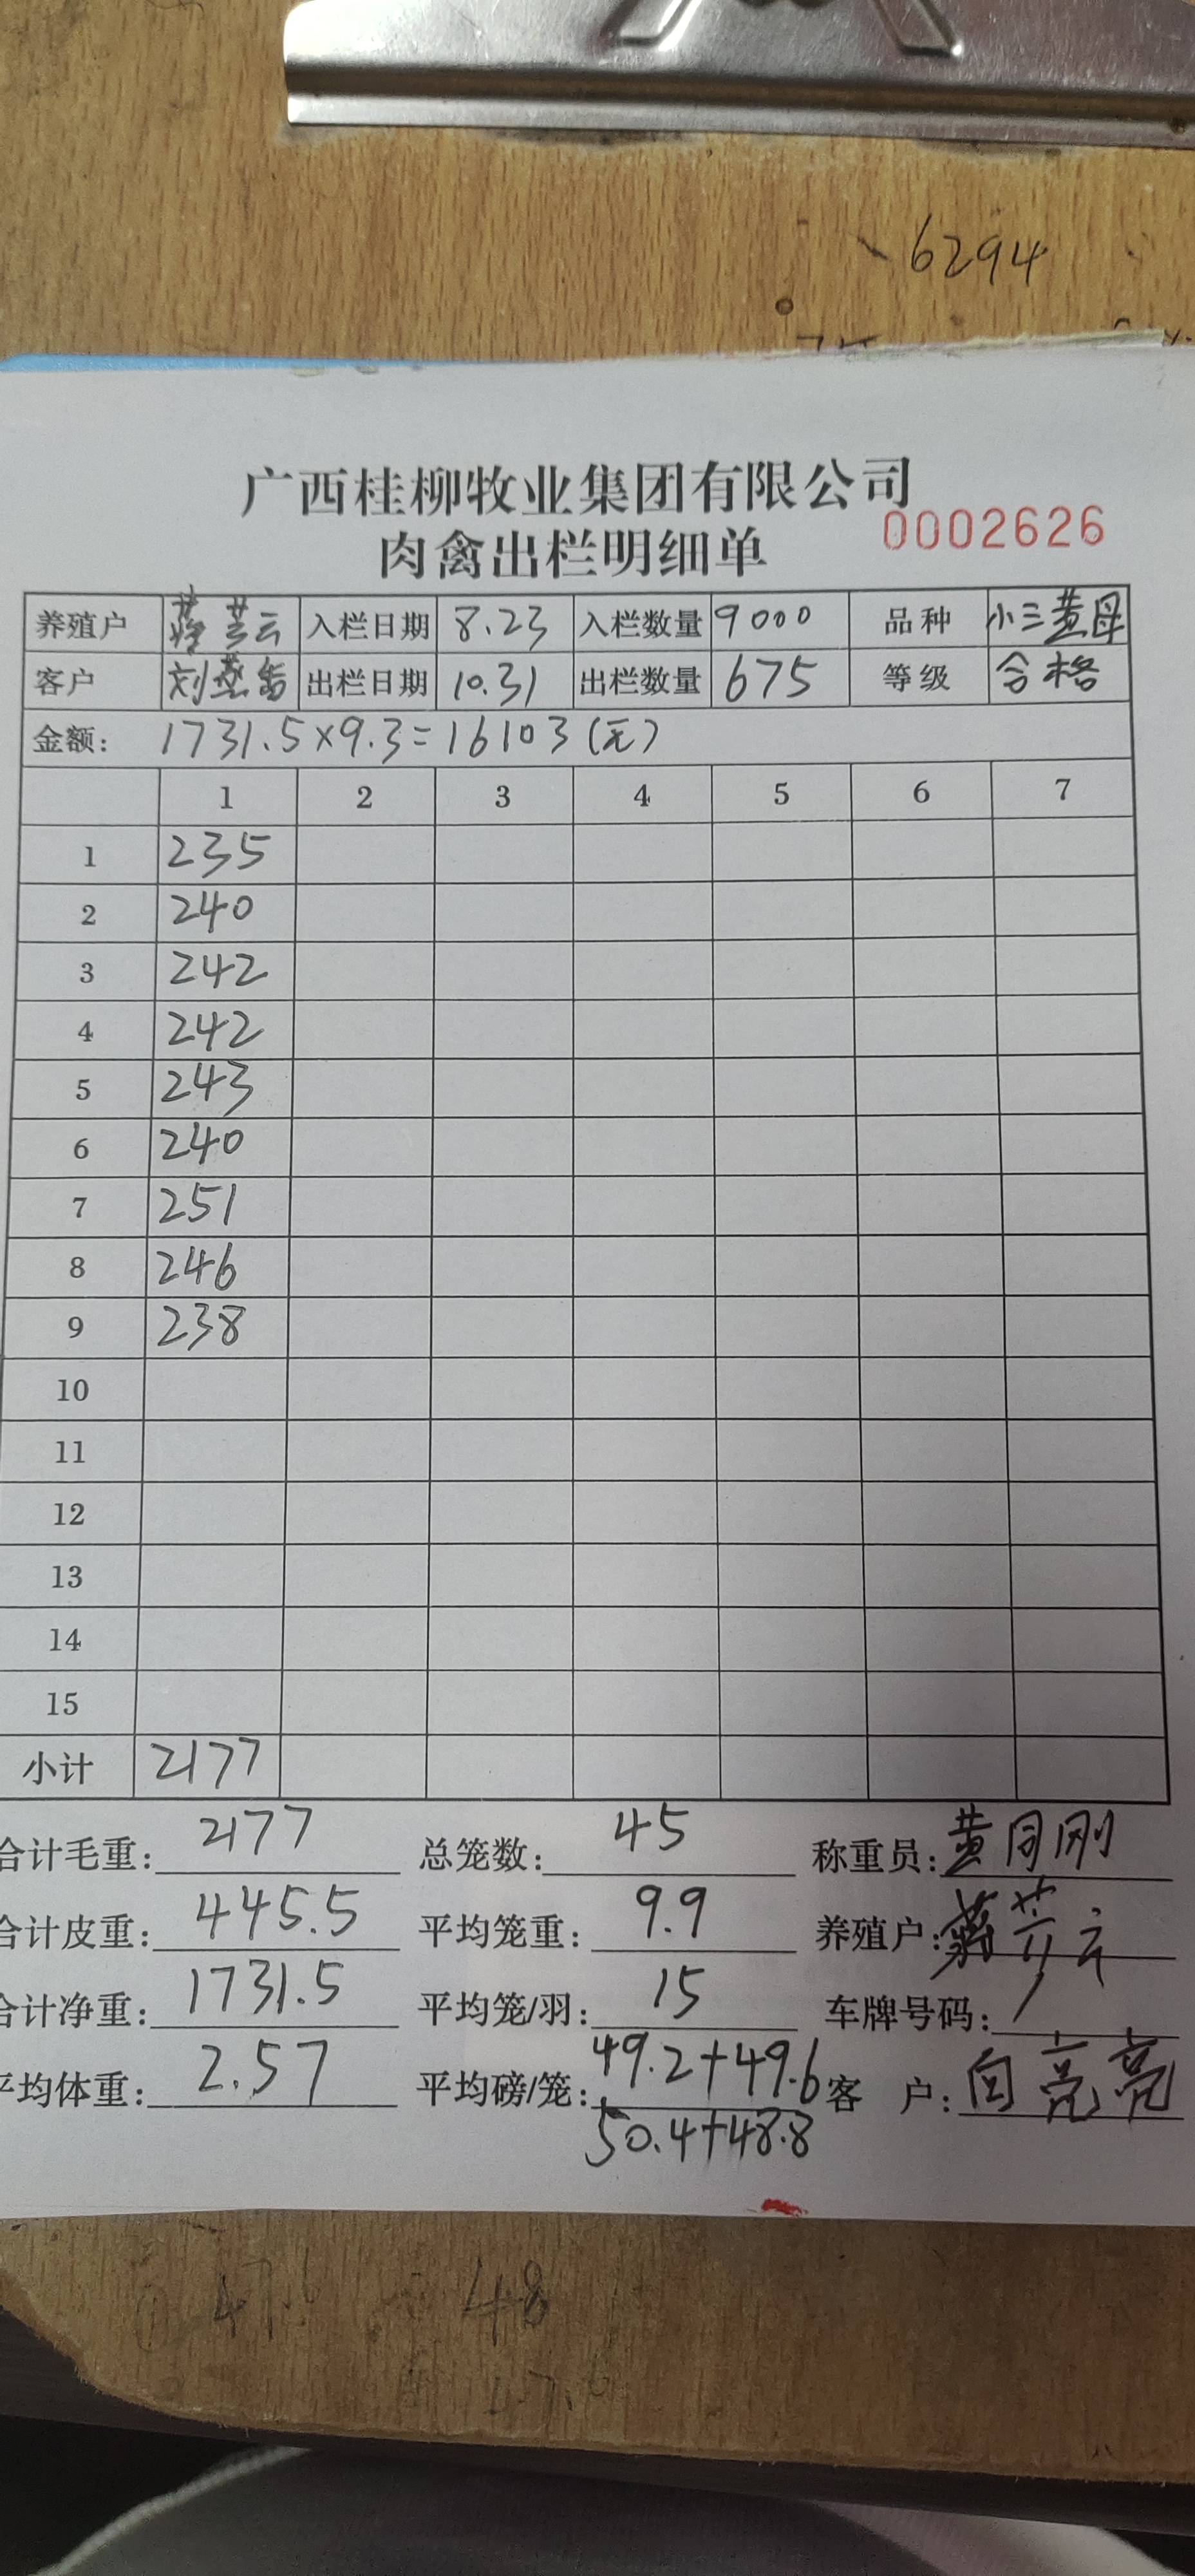 6294
广西桂柳牧业集团有限公司
0002626
肉禽出栏明细单
养殖户 云 入栏日期 8.23 入栏数量 9000 品种 小三黄母
客户 刘 出栏日期 10.31 出栏数量 675 等级 合格
金额: 1731.5×9.3=16103(元)
1 2 3 4 5 6 7
1 235
2 240
3 242
4 242
5 243
6 240
7 251
8 246
9 238
10
11
12
13
14
15
小计 2177
合计毛重: 2177 总笼数: 45 称重员: 黄同刚
合计皮重: 445.5 平均笼重: 9.9 养殖户: 云
合计净重: 1731.5 平均笼/羽: 15 车牌号码: /
平均体重: 2.57 平均磅/笼: 49.2+49.6 客 户: 白亮亮
50.4+48.8
47.6 48